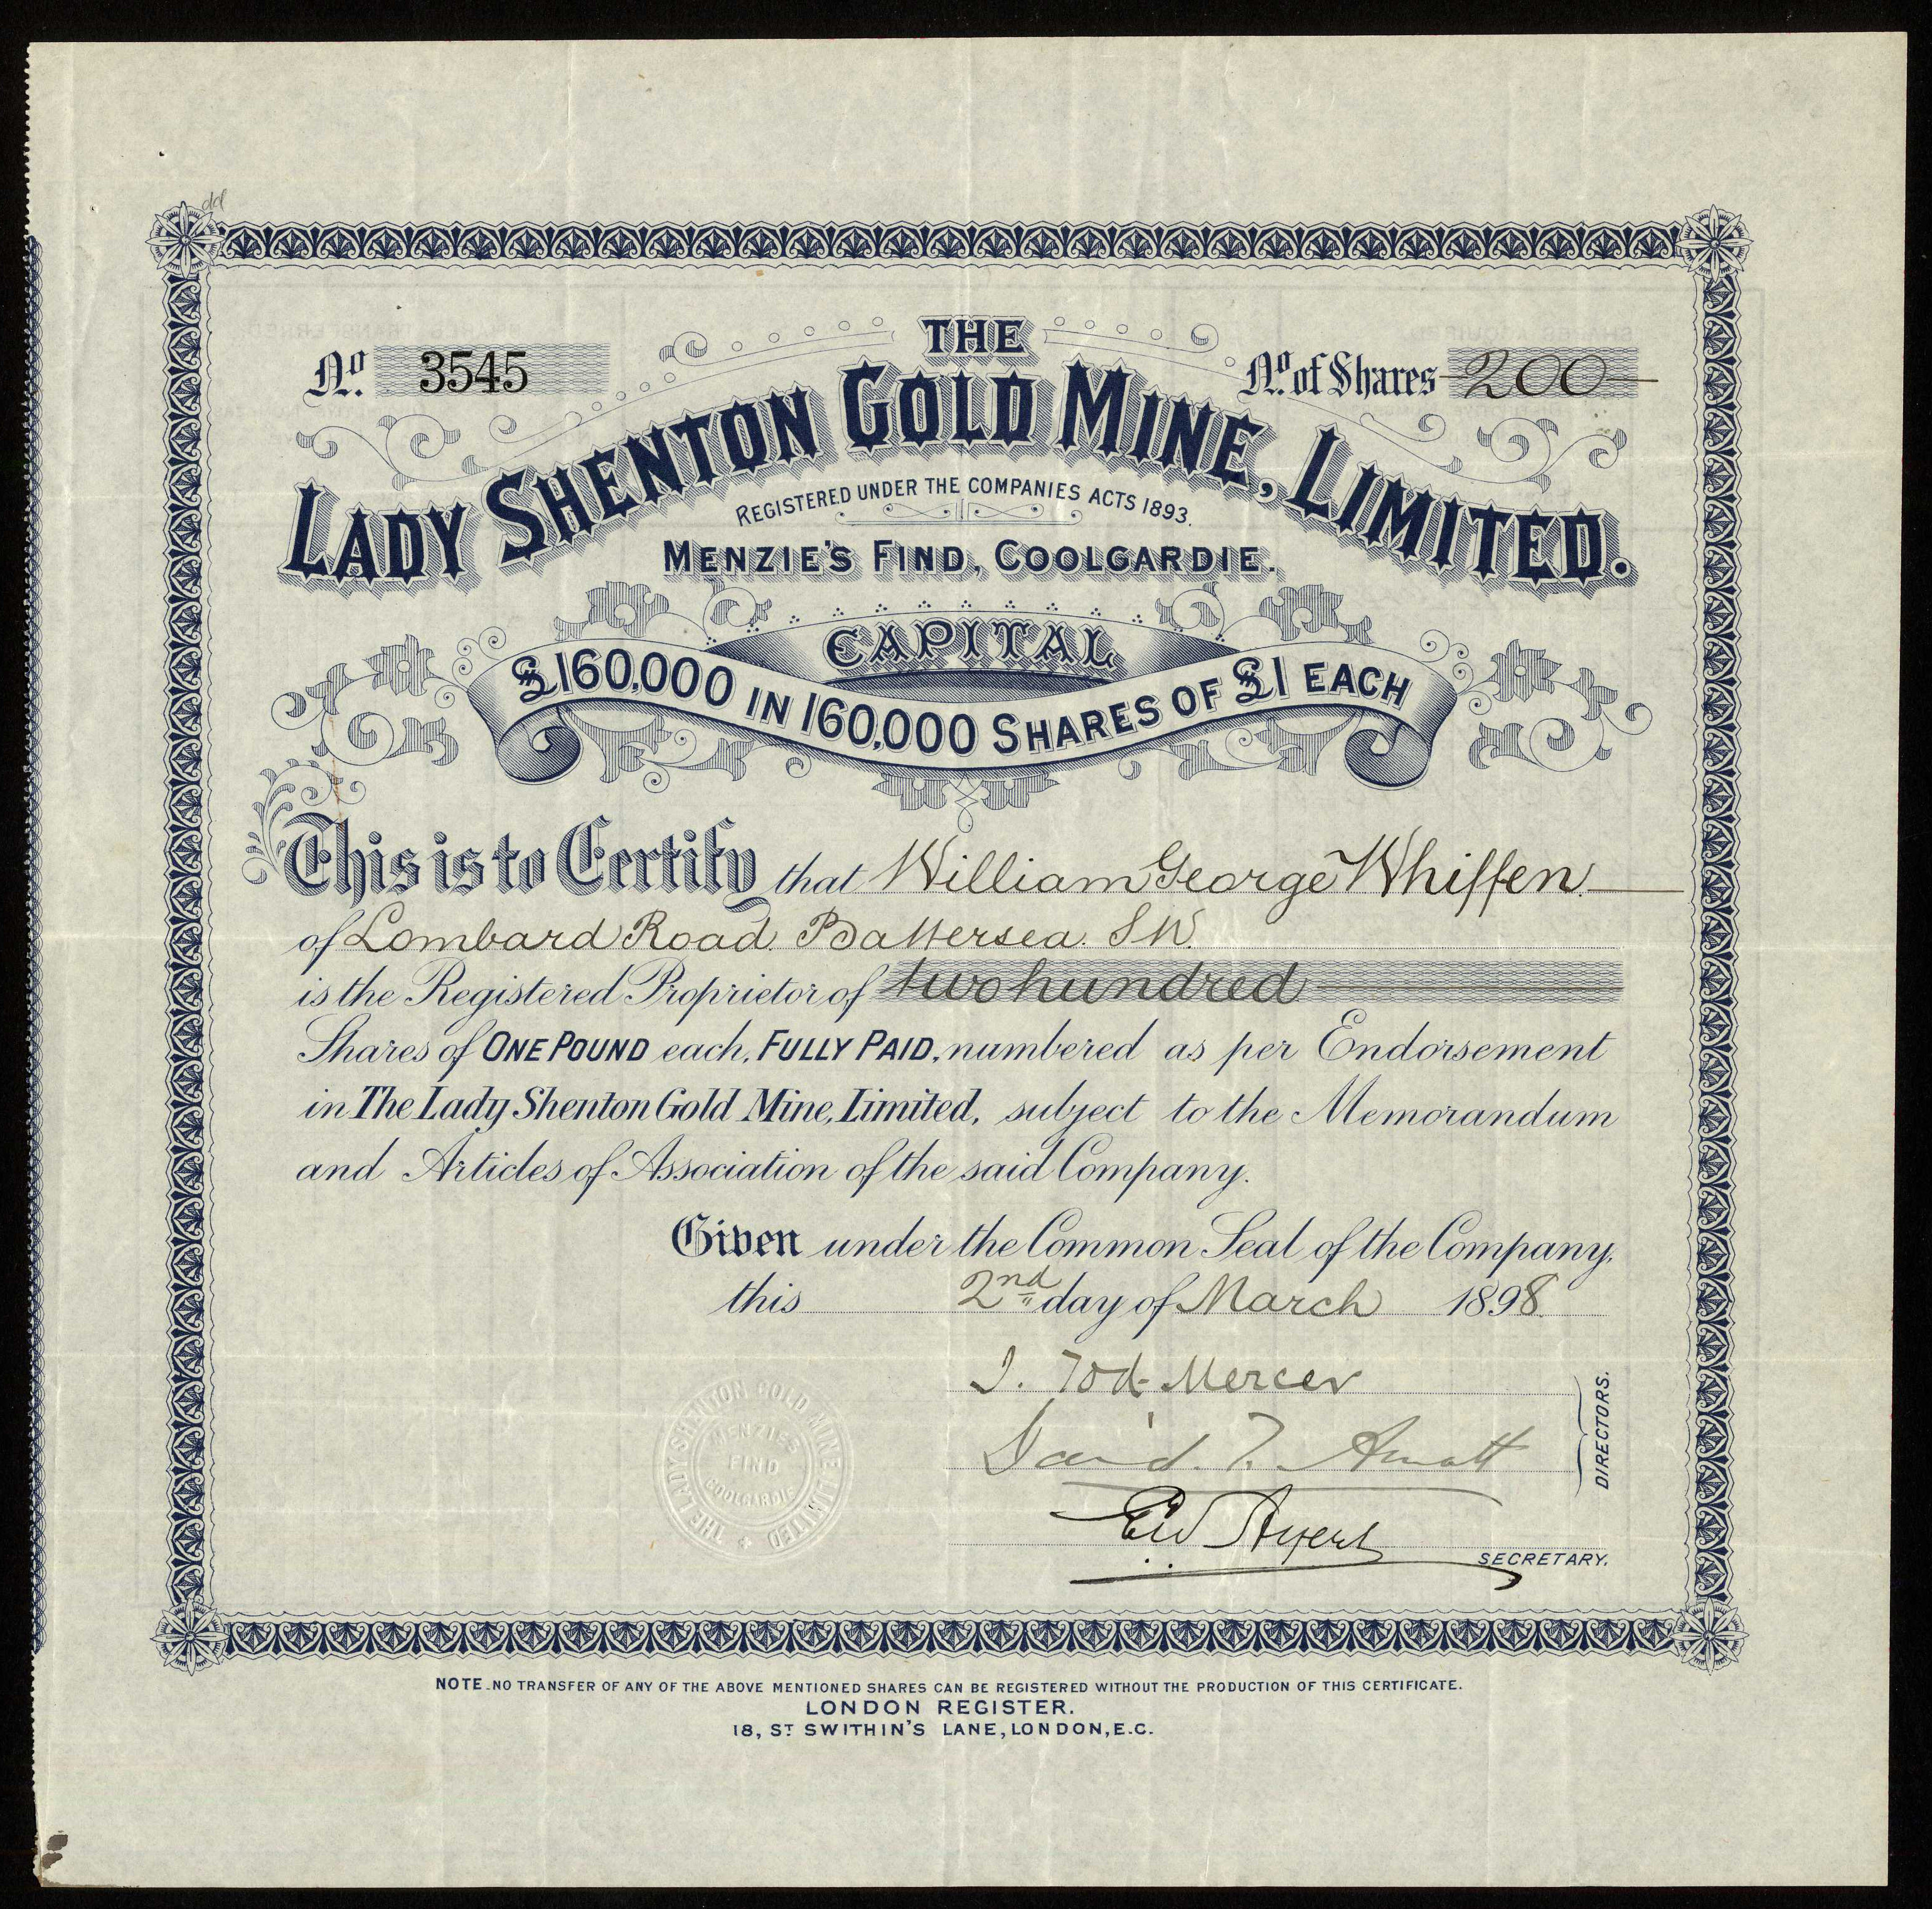 THE
Nº 3545
Nº of Shares 200
LADY SHENTON GOLD MINE, LIMITED.
REGISTERED UNDER THE COMPANIES ACTS 1893.
MENZIE'S FIND, COOLGARDIE.
CAPITAL
£160,000 IN 160,000 SHARES OF £1 EACH
This is to Certify that William George Whiffen
of Lombard Road. Battersea. S.W.
is the Registered Proprietor of two hundred
Shares of ONE POUND each, FULLY PAID, numbered as per Endorsement
in The Lady Shenton Gold Mine, Limited, subject to the Memorandum
and Articles of Association of the said Company.
Given under the Common Seal of the Company,
this 2nd day of March 1898.
J. Tod-Mercer
David
DIRECTORS.
THE LADY SHENTON GOLD MINE LIMITED
MENZIES
FIND
COOLGARDIE
Ayers
SECRETARY.
NOTE_NO TRANSFER OF ANY OF THE ABOVE MENTIONED SHARES CAN BE REGISTERED WITHOUT THE PRODUCTION OF THIS CERTIFICATE.
LONDON REGISTER.
18, ST SWITHIN'S LANE, LONDON, E.C.